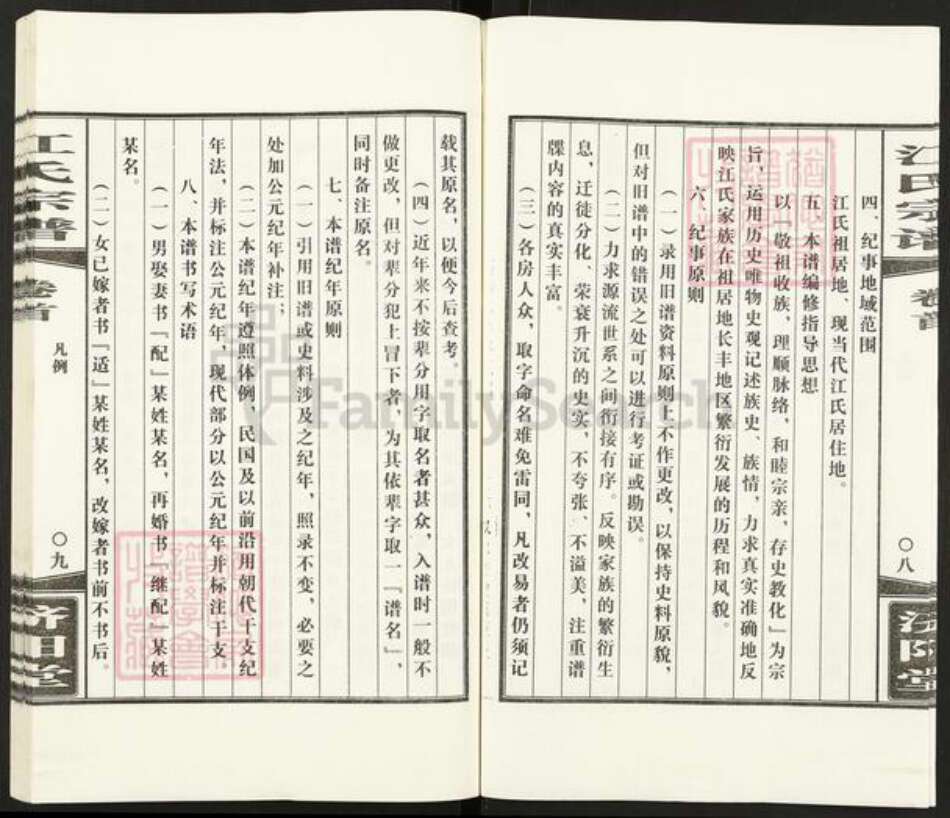 江氏宗谱
卷首
〇八
济阳堂
四、纪事地域范围
江氏祖居地、现当代江氏居住地。
五、本谱编修指导思想
以「敬祖收族，理顺脉络，和睦宗亲，存史教化」为宗
旨，运用历史唯物史观记述族史、族情，力求真实准确地反
映江氏家族在祖居地长丰地区繁衍发展的历程和风貌。
六、纪事原则
（一）录用旧谱资料原则上不作更改，以保持史料原貌，
但对旧谱中的错误之处可以进行考证或勘误。
（二）力求源流世系之间衔接有序。反映家族的繁衍生
息，迁徙分化、荣衰升沉的史实，不夸张、不溢美，注重谱
牒内容的真实丰富。
（三）各房人众，取字命名难免雷同，凡改易者仍须记
载其原名，以便今后查考。
（四）近年来不按辈分用字取名者甚众，入谱时一般不
做更改，但对辈分犯上冒下者，为其依辈字取一「谱名」，
同时备注原名。
七、本谱纪年原则
（一）引用旧谱或史料涉及之纪年，照录不变，必要之
处加公元纪年补注；
（二）本谱纪年遵照体例，民国及以前沿用朝代干支纪
年法，并标注公元纪年，现代部分以公元纪年并标注干支
八、本谱书写术语
（一）男娶妻书「配」某姓某名，再婚书「继配」某姓
某名。
（二）女已嫁者书「适」某姓某名，改嫁者书前不书后。
江氏宗谱
卷首
凡例
〇九
济阳堂
FamilySearch